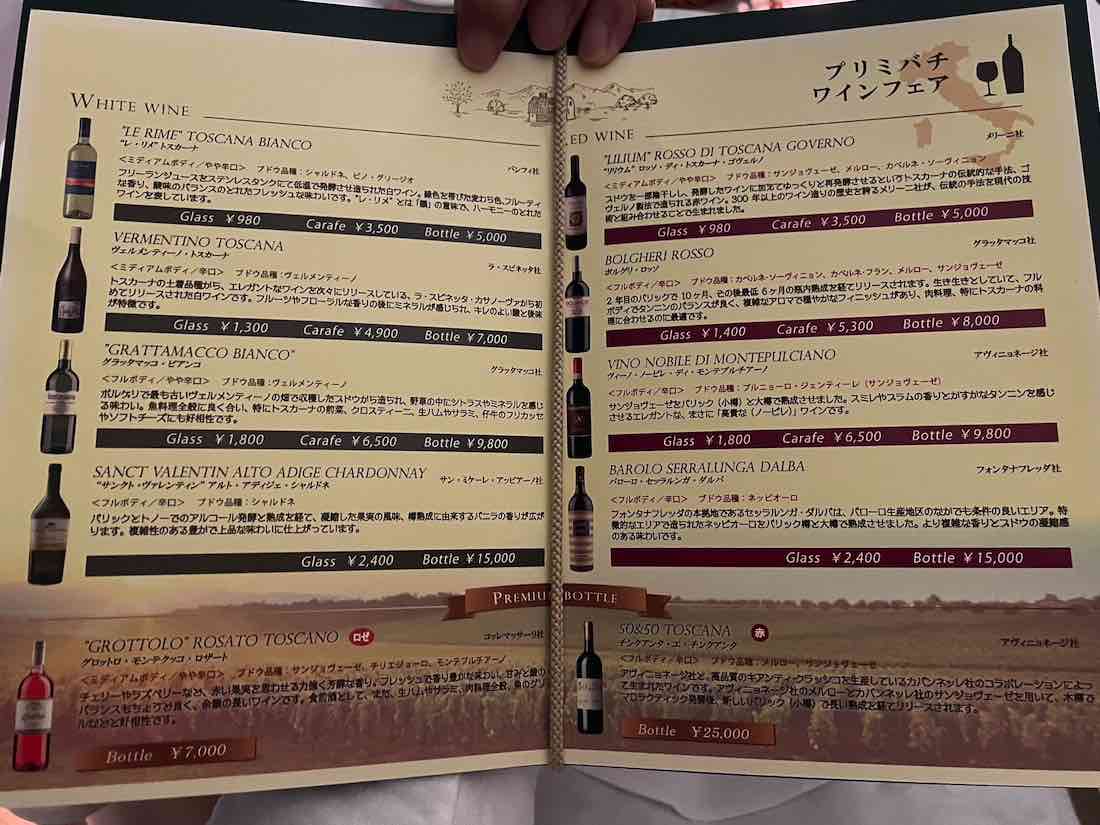 WHITE WINE
"LE RIME" TOSCANA BIANCO
"レ・リメ"トスカーナ
バンフィ社
<ミディアムボディ/やや辛口> ブドウ品種:シャルドネ、ピノ・グリージオ
フリーランジュースをステンレスタンクにて低温で発酵させ造られた白ワイン。緑色を帯びた麦わら色、フルーティ
な香り、酸味のバランスのとれたフレッシュな味わいです。"レ・リメ"とは「韻」の意味で、ハーモニーのとれた
ワインを表しています。
Glass ¥980 Carafe ¥3,500 Bottle ¥5,000
VERMENTINO TOSCANA
ヴェルメンティーノ・トスカーナ
ラ・スピネッタ社
<ミディアムボディ/辛口> ブドウ品種:ヴェルメンティーノ
トスカーナの土着品種がら、エレガントなワインを次々にリリースしている、ラ・スピネッタ・カサノーヴァから初
めてリリースされた白ワインです。フルーツやフローラルな香りの後にミネラルが感じられ、キレのよい酸と後味
が特徴です。
Glass ¥1,300 Carafe ¥4,900 Bottle ¥7,000
"GRATTAMACCO BIANCO"
グラッタマッコ・ビアンコ
グラッタマッコ社
<フルボディ/やや辛口> ブドウ品種:ヴェルメンティーノ
ボルゲリで最も古いヴェルメンティーノの畑で収穫したブドウがら造られ、野草の中にシトラスやミネラルを感じ
る味わい。魚料理全般に良く合い、特にトスカーナの前菜、クロスティーニ、生ハムやサラミ、仔牛のフリカッセ
やソフトチーズにも好相性です。
Glass ¥1,800 Carafe ¥6,500 Bottle ¥9,800
SANCT VALENTIN ALTO ADIGE CHARDONNAY
"サンクト・ヴァレンティン" アルト・アディジェ・シャルドネ
サン・ミケーレ・アッピアーノ社
<フルボディ/辛口> ブドウ品種:シャルドネ
バリックとトノーでのアルコール発酵と熟成を経て、凝縮した果実の風味、樽熟成に由来するバニラの香りが広が
ります。複雑性のある豊かで上品な味わいに仕上がっています。
Glass ¥2,400 Bottle ¥15,000
プリミバチ
ワインフェア
RED WINE
"LILIUM" ROSSO DI TOSCANA GOVERNO
メリーニ社
"リリウム" ロッソ・ディ・トスカーナ・ゴヴェルノ
<ミディアムボディ/やや辛口> ブドウ品種:サンジョヴェーゼ、メルロー、カベルネ・ソーヴィニョン
ブドウを一部陰干しし、発酵したワインに加えてゆっくりと再発酵させるというトスカーナの伝統的な手法、ゴ
ヴェルノ製法で造られる赤ワイン。300年以上のワイン造りの歴史を誇るメリーニ社が、伝統の手法を現代の技
術と組み合わせることで生まれました。
Glass ¥980 Carafe ¥3,500 Bottle ¥5,000
BOLGHERI ROSSO
グラッタマッコ社
ボルゲリ・ロッソ
<フルボディ/辛口> ブドウ品種:カベルネ・ソーヴィニョン、カベルネ・フラン、メルロー、サンジョヴェーゼ
2年目のバリックで10ヶ月、その後最低6ヶ月の瓶内熟成を経てリリースされます。生き生きとしていて、フル
ボディでタンニンのバランスが良く、複雑なアロマで穏やかなフィニッシュがあり、肉料理、特にトスカーナの料
理に合わせるのに最適です。
Glass ¥1,400 Carafe ¥5,300 Bottle ¥8,000
VINO NOBILE DI MONTEPULCIANO
アヴィニョネージ社
ヴィーノ・ノービレ・ディ・モンテプルチアーノ
<フルボディ/辛口> ブドウ品種:プルニョーロ・ジェンティーレ(サンジョヴェーゼ)
サンジョヴェーゼをバリック(小樽)と大樽で熟成させました。スミレやスラムの香りとがすかなタンニンを感じ
させるエレガントな、まさに「高貴な(ノービレ)」ワインです。
Glass ¥1,800 Carafe ¥6,500 Bottle ¥9,800
BAROLO SERRALUNGA DALBA
フォンタナフレッダ社
バローロ・セッラルンガ・ダルバ
<フルボディ/辛口> ブドウ品種:ネッビオーロ
フォンタナフレッダの本拠地であるセッラルンガ・ダルバは、バローロ生産地区のなかでも条件の良いエリア。特
徴的なエリアで造られたネッビオーロをバリック樽と大樽で熟成させました。より複雑な香りとブドウの凝縮感
のある味わいです。
Glass ¥2,400 Bottle ¥15,000
PREMIUM BOTTLE
"GROTTOLO" ROSATO TOSCANO ロゼ
コッレマッサーリ社
グロットロ・モンテクッコ・ロザート
<ミディアムボディ/やや辛口> ブドウ品種:サンジョヴェーゼ、チリエジョーロ、モンテプルチアーノ
チェリーやラズベリーなど、赤い果実を思わせる力強く芳醇な香り。フレッシュで香り豊かな味わい。甘みと酸の
バランスもちょうど良く、余韻の長いワインです。食前酒として、また、生ハムやサラミ、肉料理全般、魚のグリ
ルなどと好相性です。
Bottle ¥7,000
50&50 TOSCANA 赤
アヴィニョネージ社
チンクアンタ・エ・チンクアンタ
<フルボディ/辛口> ブドウ品種:メルロー、サンジョヴェーゼ
アヴィニョネージ社と、高品質のキアンティ・クラッシコを生産しているカパンネッレ社のコラボレーションによっ
て生まれたワインです。アヴィニョネージ社のメルローとカパンネッレ社のサンジョヴェーゼを用いて、木樽で
マロラクティック発酵後、新しいバリック(小樽)で長い熟成を経てリリースされます。
Bottle ¥25,000